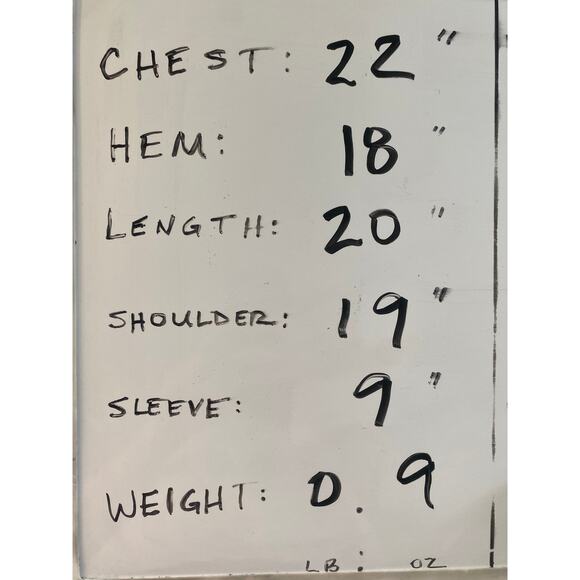 CHEST: 22"
HEM: 18"
LENGTH: 20"
SHOULDER: 19"
SLEEVE: 9"
WEIGHT: 0.9
LB : OZ